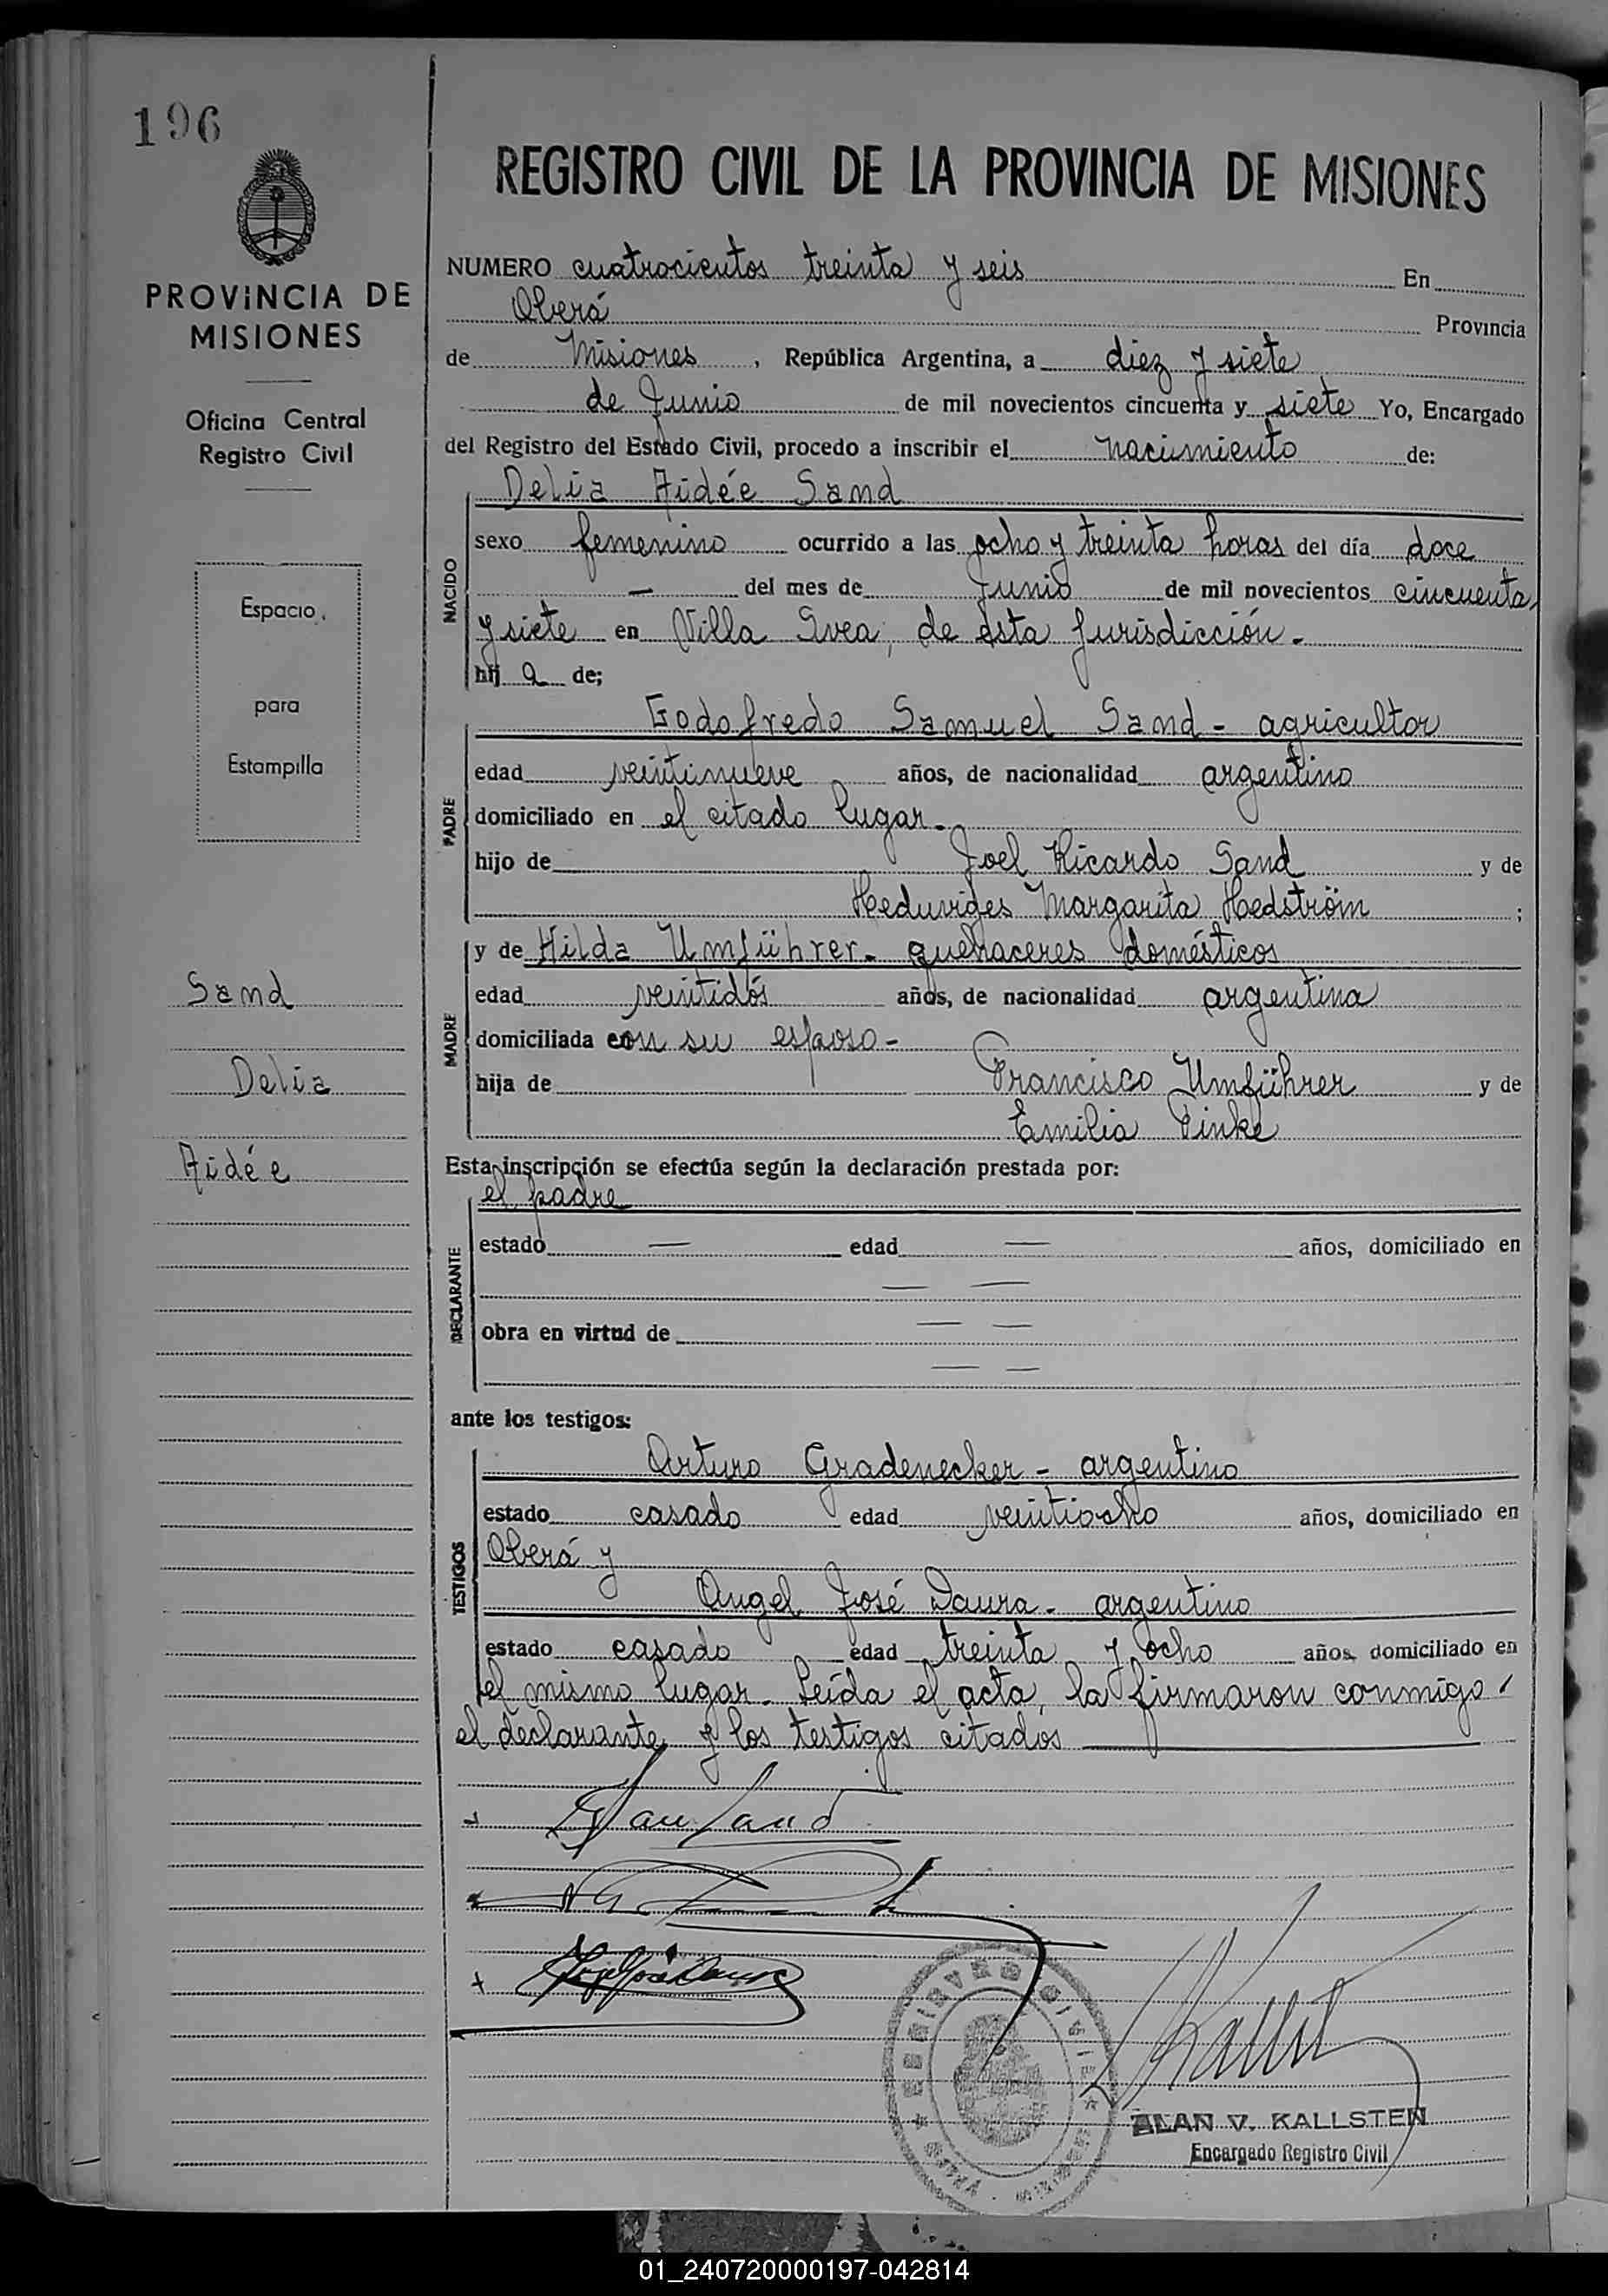 196
PROVINCIA DE
MISIONES
Oficina Central
Registro Civil
Espacio
para
Estampilla
Sand
Delia
Aidée
REGISTRO CIVIL DE LA PROVINCIA DE MISIONES
NUMERO cuatrocientos treinta y seis En
Oberá Provincia
de Misiones, República Argentina, a diez y siete
de Junio de mil novecientos cincuenta y siete Yo, Encargado
del Registro del Estado Civil, procedo a inscribir el nacimiento de:
Delia Aidée Sand
NACIDO
sexo femenino ocurrido a las ocho y treinta horas del día doce
— del mes de Junio de mil novecientos cincuenta
y siete en Villa Svea, de ésta jurisdicción.-
hij a de;
PADRE
Godofredo Samuel Sand - agricultor
edad veintinueve años, de nacionalidad argentino
domiciliado en el citado lugar.-
hijo de Joel Ricardo Sand y de
Heduviges Margarita Hedström ;
MADRE
y de Hilda Umführer. quehaceres domésticos
edad veintidós años, de nacionalidad argentina
domiciliada con su esposo -
hija de Francisco Umführer y de
Emilia Pinke
Esta inscripción se efectúa según la declaración prestada por:
DECLARANTE
el padre
estado — edad — años, domiciliado en
— —
obra en virtud de — —
— —
ante los testigos:
TESTIGOS
Arturo Gradenecker - argentino
estado casado edad veintiocho años, domiciliado en
Oberá y
Angel José Daura - argentino
estado casado edad treinta y ocho años, domiciliado en
el mismo lugar. Leída el acta, la firmaron conmigo
el declarante y los testigos citados
REGISTRO CIVIL
ALAN V. KALLSTEN
Encargado Registro Civil
01_240720000197-042814